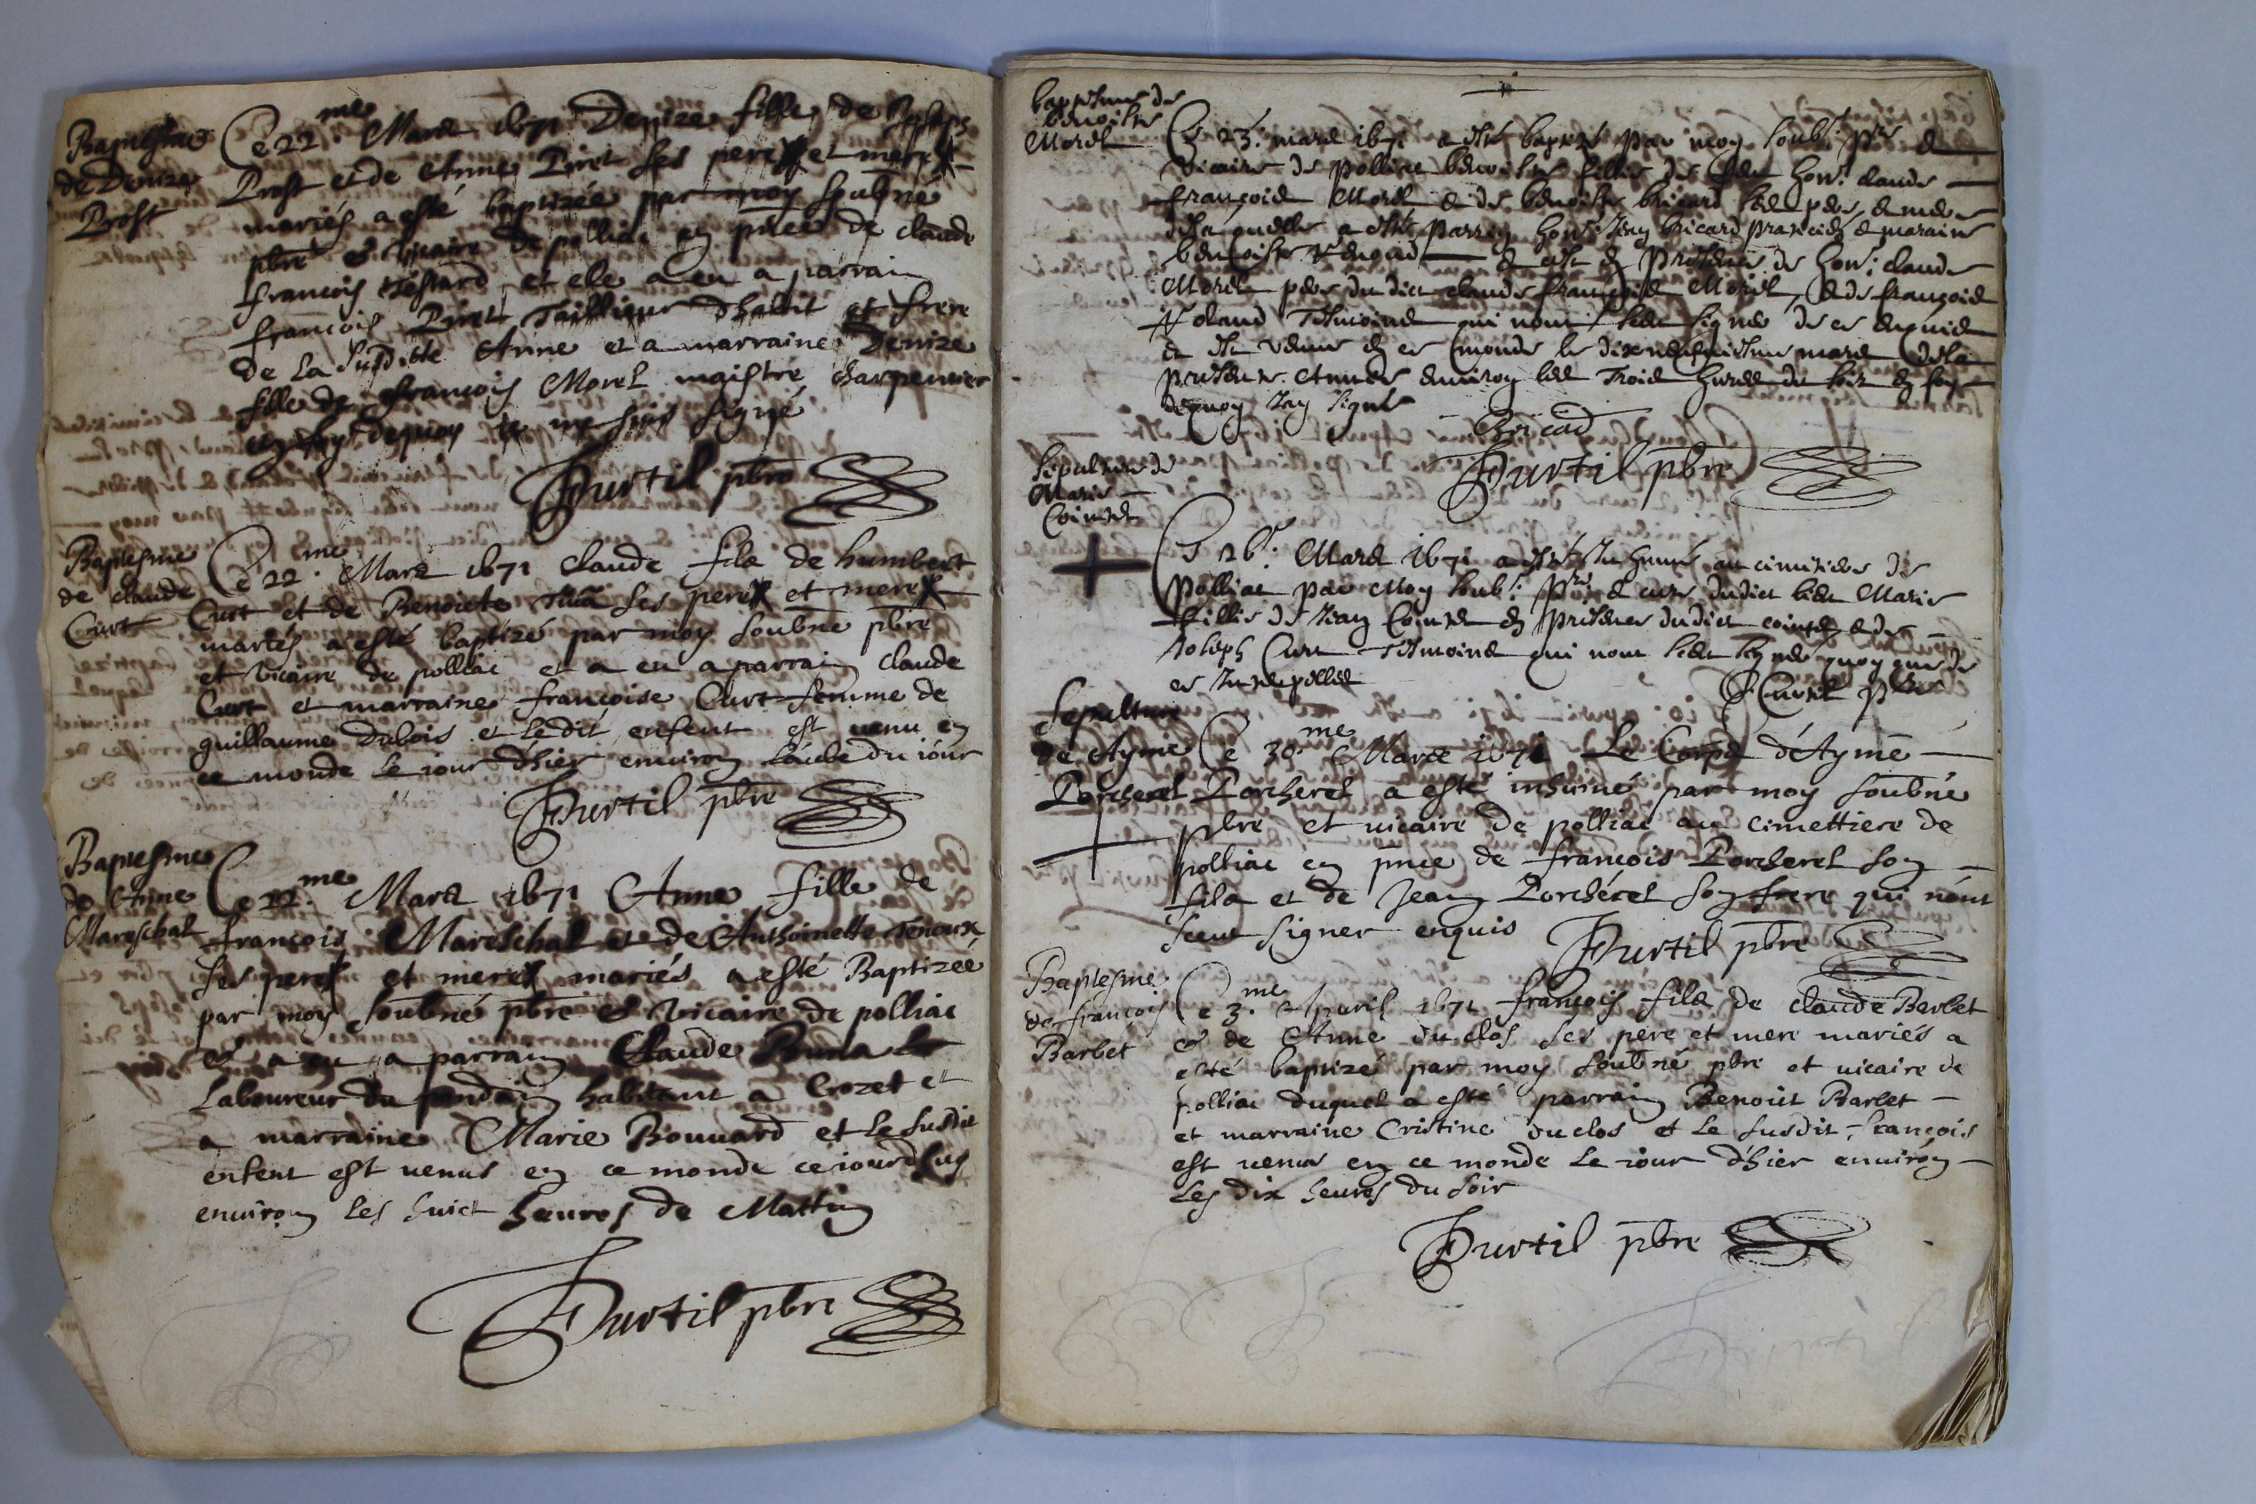 Baptesme
de Denize
Prost
Ce 22.me Mars 1671 Denize fille de Joseph
Prost et de Anne Piret ses pere et mere
mariés a esté baptizée par moy soubné
pbre et vicaire de polliac en pnce de claude
francois testard et ele a eu a parrain
francois Piret Taillieur d'habit et frere
de la susdite Anne et a marraine Denize
fille de francois Morel maistre charpentier
en foy dequoy ie me suis signé
Hurtil pbre
Baptesme
de claude
Curt
Ce 22.me Mars 1671 claude fils de humbert
Curt et de Benoiete ses pere et mere
mariés a esté baptizé par moy soubne pbre
et vicaire de polliac et a eu a parrain claude
Curt et marraine françoise Curt femme de
guillaume dubois et ledit enfent est venu en
ce monde le iour d'hier environ l'aube du iour
Hurtil pbre
Baptesme
de Anne
Mareschal
Ce 22.me Mars 1671 Anne fille de
francois Mareschal et de Anthoinette
ses pere et mere mariés a esté Baptizée
par moy soubné pbre et vicaire de polliac
et a eu a parrain Claude
Laboureur du habitant a Crozet et
a marraine Marie Bouuard et le susdit
enfent est venus en ce monde ce iourdhuy
environ les huict heures de Mattin
Hurtil pbre
baptesme de
benoiste
Morel
Ce 23. mars 1671 a esté baptizé par moy soubs. pre et
vicaire de polliac benoiste fillie de hon. claude
françois Morel et de benoiste bricard ses pere et mere
a esté parrin hon. Jean bricard praticien et maraine
benoiste et cest en presence de hon. claude
Morel pere du dict claude françois Morel et de françois
Roland tesmoins qui nont sceu signer de ce enquis
et est venue en ce monde le dixneufuiesme mars de la
presente Année environ les trois heures du soir en foy
dequoy Jay signé
Bricad
Hurtil pbre
Sepulture de
Marie
Cointet
Ce 26. Mars 1671 a esté Inhumé au cimitiere de
Polliac par Moy soubs. pre et cure dudict lieu Marie
fillie de Jean Cointet en presence dudict cointet et de
Joseph Curt tesmoins qui nont sceu signer quoy que de
ce Interpellés
Hurtil pbre
Sepulture
de Ayme
Porcherel
Ce 30.me Mars 1671 Le Corps d'Aymé
Porcherel a esté inhumé par moy soubné
pbre et vicaire de polliac au cimettiere de
polliac en pnce de francois Porcherel son
fils et de Jean Porchérel son frere qui n'ont
sceut signer enquis
Hurtil pbre
Baptesme
de francois
Barbet
Ce 3.me Apvril 1671 francois fils de claude Berbet
et de Anne du clos ses pere et mere mariés a
esté baptizé par moy soubné pbre et vicaire de
polliac duquel a esté parrain Benoict Barbet
et marraine Cristine du clos et le susdit francois
est venu en ce monde le iour d'hier environ
les dix heures du soir
Hurtil pbre